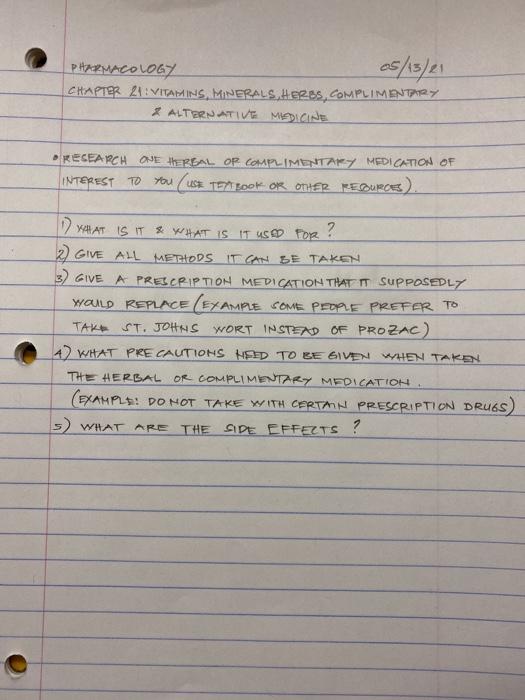 PHARMACOLOGY 05/13/21
CHAPTER 21: VITAMINS, MINERALS, HERBS, COMPLIMENTARY
& ALTERNATIVE MEDICINE
• RESEARCH ONE HERBAL OR COMPLIMENTARY MEDICATION OF
INTEREST TO YOU (USE TEXTBOOK OR OTHER RESOURCES).
1) WHAT IS IT & WHAT IS IT USED FOR?
2) GIVE ALL METHODS IT CAN BE TAKEN
3) GIVE A PRESCRIPTION MEDICATION THAT IT SUPPOSEDLY
WOULD REPLACE (EXAMPLE SOME PEOPLE PREFER TO
TAKE ST. JOHNS WORT INSTEAD OF PROZAC)
4) WHAT PRECAUTIONS NEED TO BE GIVEN WHEN TAKEN
THE HERBAL OR COMPLIMENTARY MEDICATION.
(EXAMPLE: DO NOT TAKE WITH CERTAIN PRESCRIPTION DRUGS)
5) WHAT ARE THE SIDE EFFECTS?